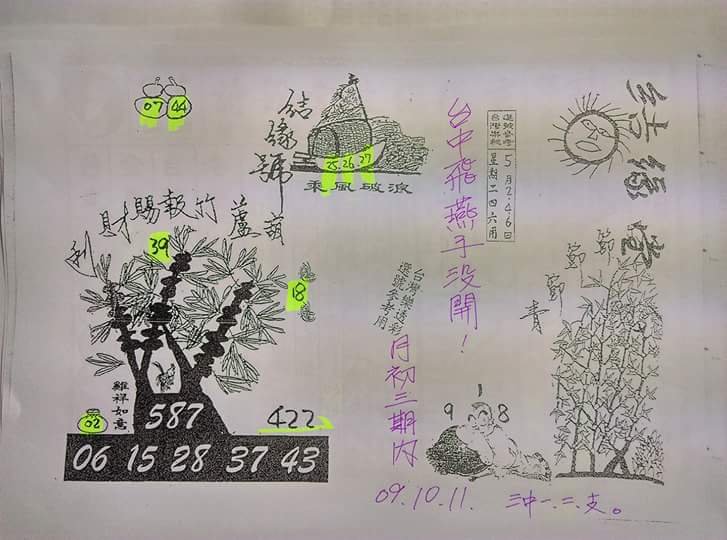 07 44
結緣號
25.26.27
乘風破浪
葫蘆竹報賜財利
39
18
雞祥如意
02
587
422
06 15 28 37 43
台中飛燕子没開！
選號參考
台灣樂透
5月2.4.6日
星期二四六用
台灣樂透彩
選號參考用
月初三期内
9 1 8
09.10.11. 三中一.二.支。
結緣堂
節節節青